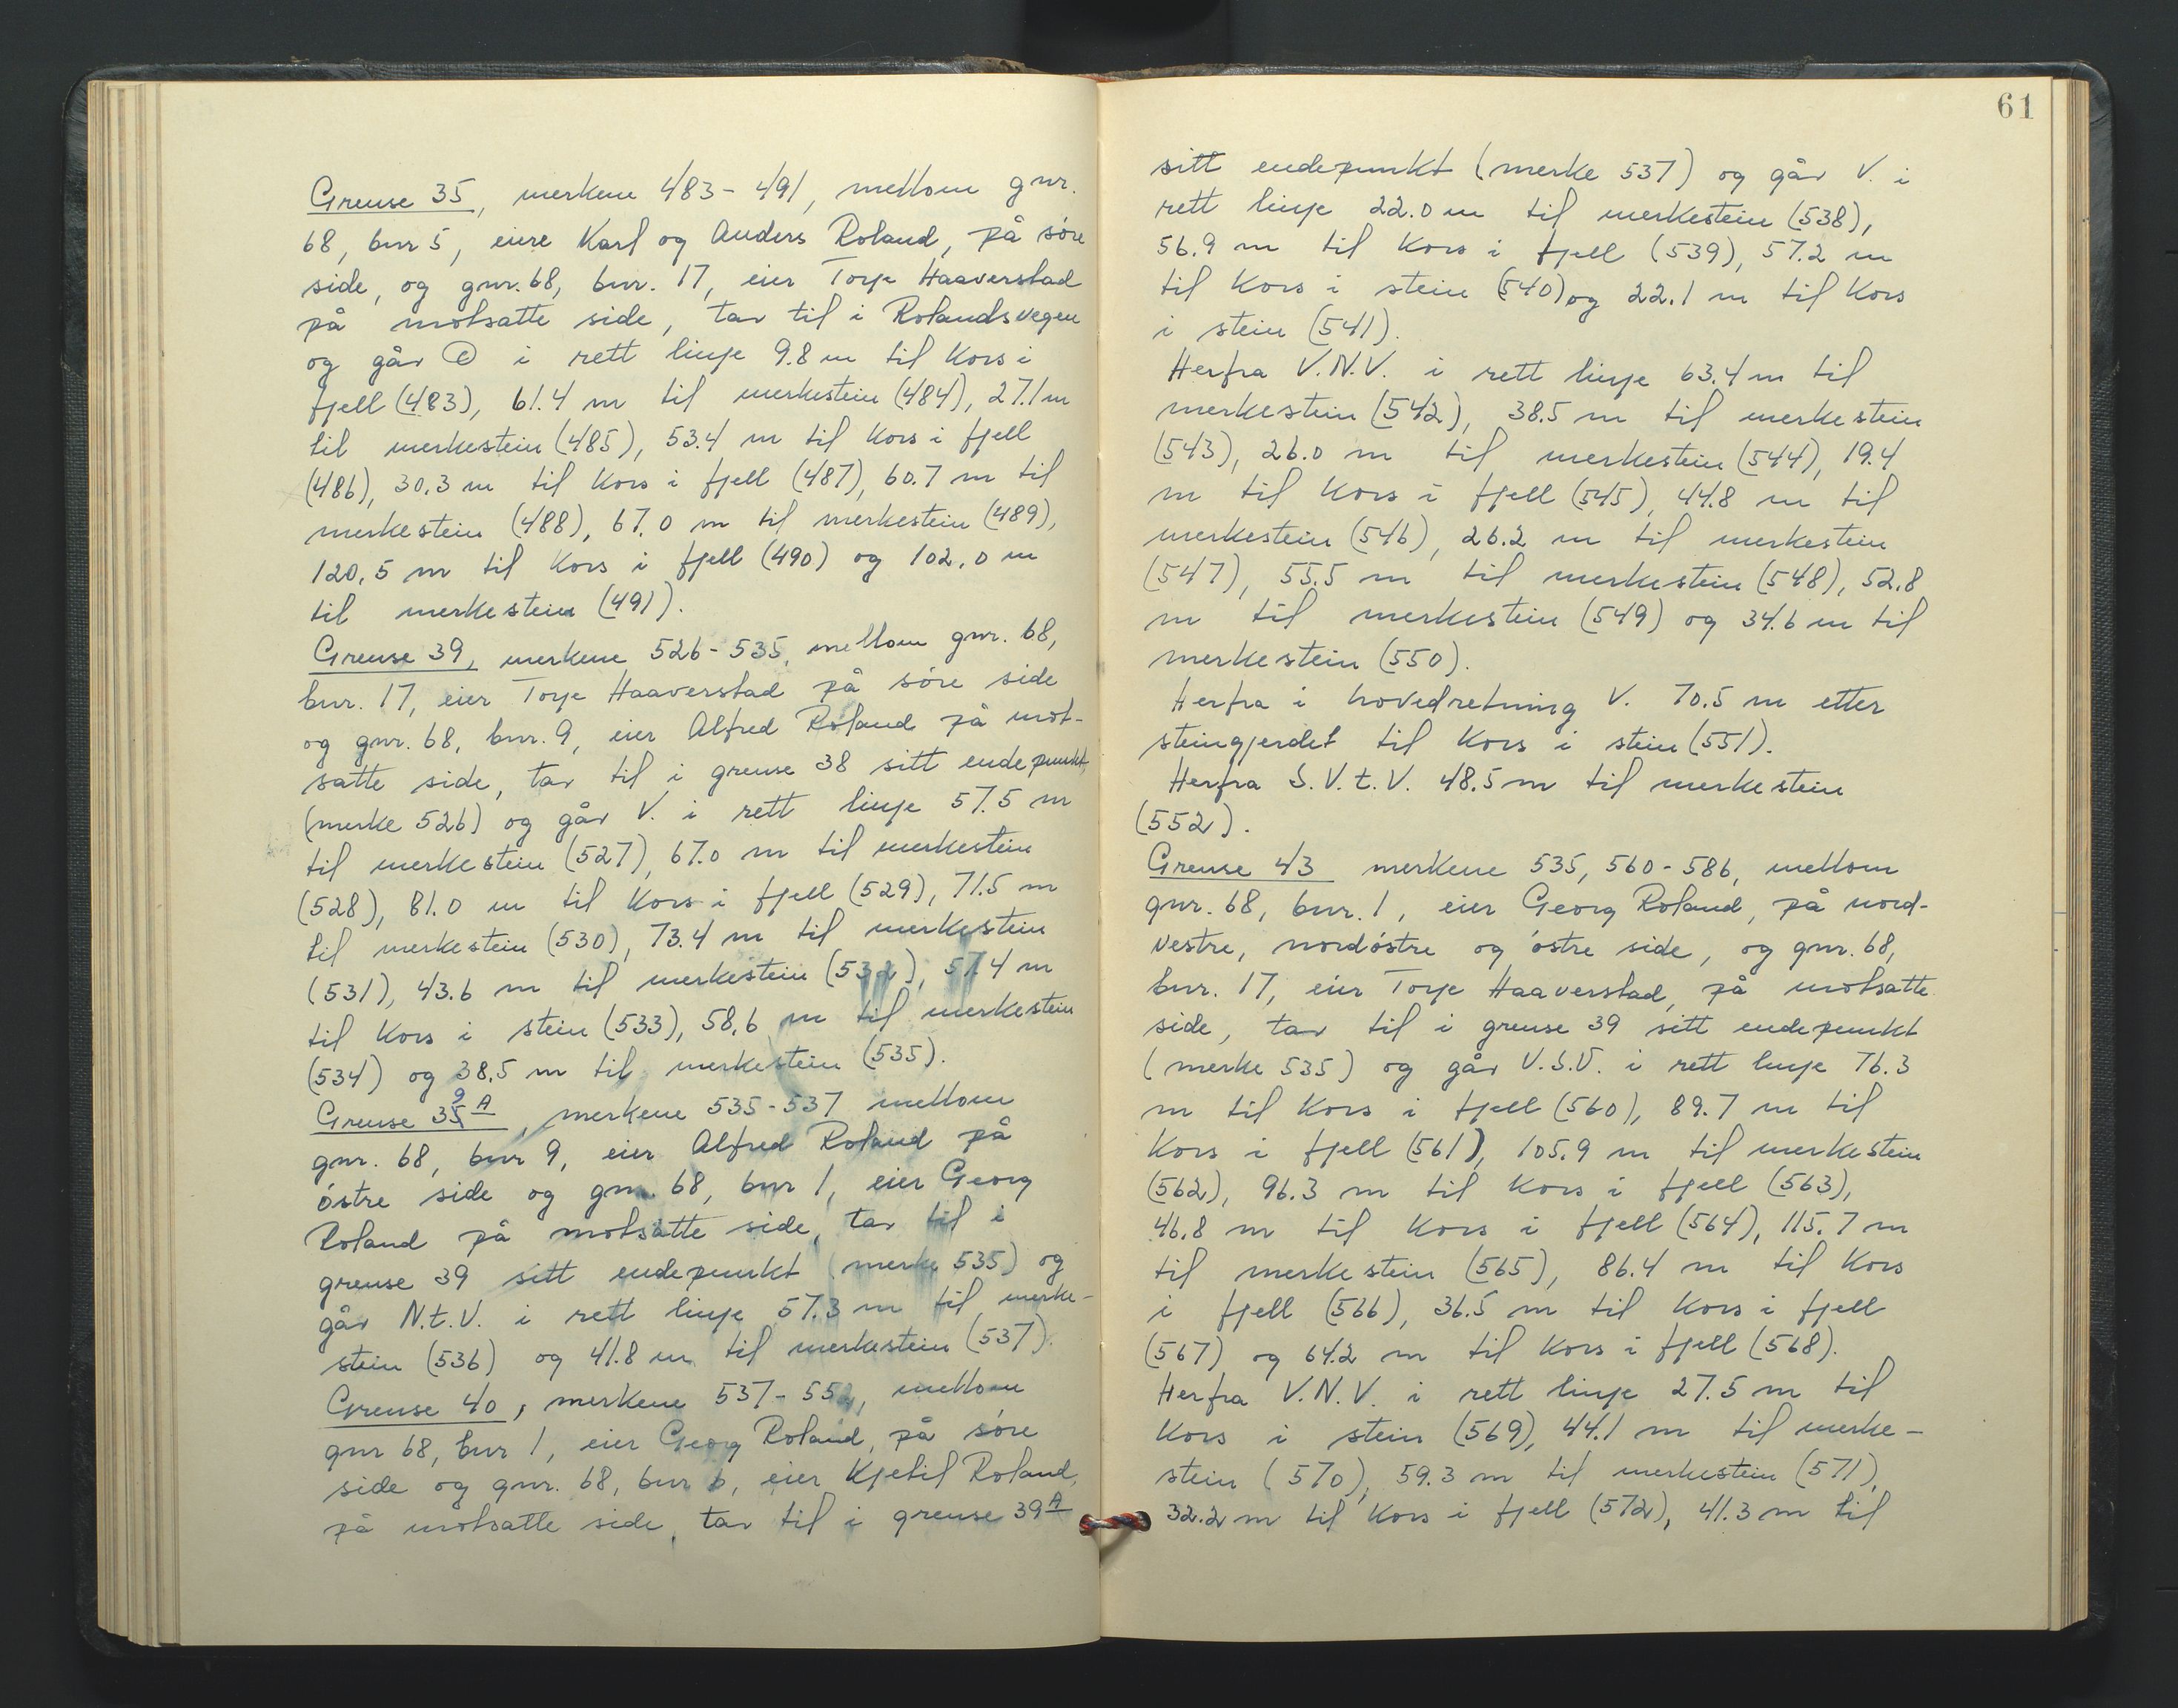 Grense 35, merkene 483-491, mellom gnr.
68, bnr 5, eiere Karl og Anders Roland, på søre
side, og gnr. 68, bnr. 17, eier Torje Haaverstad
på motsatte side, tar til i Rolandsvegen
og går Ⓥ i rett linje 9.8 m til Kors i
fjell (483), 61.4 m til merkestein (484), 27.1 m
til merkestein (485), 53.4 m til Kors i fjell
(486), 30.3 m til Kors i fjell (487), 60.7 m til
merkestein (488), 67.0 m til merkestein (489),
120,5 m til Kors i fjell (490) og 102.0 m
til merkestein (491).
Grense 39, merkene 526-535, mellom gnr. 68,
bnr. 17, eier Torje Haaverstad på søre side
og gnr. 68, bnr. 9, eier Alfred Roland på mot-
satte side, tar til i grense 38 sitt endepunkt,
(merke 526) og går V. i rett linje 57.5 m
til merkestein (527), 67.0 m til merkestein
(528), 81.0 m til Kors i fjell (529), 71.5 m
til merkestein (530), 73.4 m til merkestein
(531), 43.6 m til merkestein (532), 57.4 m
til Kors i stein (533), 58.6 m til merkestein
(534) og 38.5 m til merkestein (535).
Grense 39 A, merkene 535-537 mellom
gnr. 68, bnr 9, eier Alfred Roland på
østre side og gnr. 68, bnr 1, eier Georg
Roland på motsatte side, tar til i
grense 39 sitt endepunkt (merke 535) og
går N.t.V. i rett linje 57.3 m til merke-
stein (536) og 41.8 m til merkestein (537).
Grense 40, merkene 537-552, mellom
gnr 68, bnr 1, eier Georg Roland, på søre
side og gnr. 68, bnr 6, eier Kjetil Roland,
på motsatte side, tar til i grense 39 A
61
sitt endepunkt (merke 537) og går V. i
rett linje 22.0 m til merkestein (538),
56.9 m til Kors i fjell (539), 57.2 m
til Kors i stein (540) og 22.1 m til Kors
i stein (541).
Herfra V.N.V. i rett linje 63.4 m til
merkestein (542), 38.5 m til merkestein
(543), 26.0 m til merkestein (544), 19.4
m til Kors i fjell (545), 44.8 m til
merkestein (546), 26.2 m til merkestein
(547), 55.5 m til merkestein (548), 52.8
m til merkestein (549) og 34.6 m til
merkestein (550).
Herfra i hovedretning V. 70.5 m etter
steingjerdet til Kors i stein (551).
Herfra S.V.t.V. 48.5 m til merkestein
(552).
Grense 43 merkene 535, 560-586, mellom
gnr. 68, bnr. 1, eier Georg Roland, på nord-
vestre, nordøstre og østre side, og gnr. 68,
bnr. 17, eier Torje Haaverstad, på motsatte
side, tar til i grense 39 sitt endepunkt
(merke 535) og går V.S.V. i rett linje 76.3
m til Kors i fjell (560), 89.7 m til
Kors i fjell (561), 105.9 m til merkestein
(562), 96.3 m til Kors i fjell (563),
46.8 m til Kors i fjell (564), 115.7 m
til merkestein (565), 86.4 m til Kors
i fjell (566), 36.5 m til Kors i fjell
(567) og 64.2 m til Kors i fjell (568).
Herfra V.N.V. i rett linje 27.5 m til
Kors i stein (569), 44.1 m til merke-
stein (570), 59.3 m til merkestein (571),
32.2 m til Kors i fjell (572), 41.3 m til